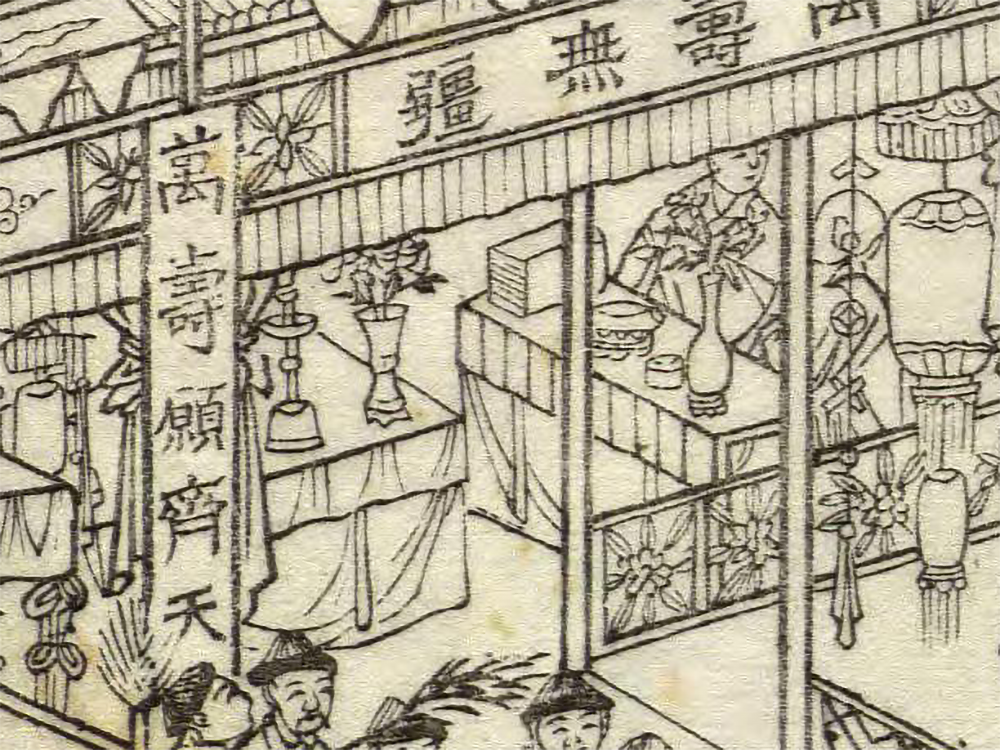 萬壽無疆
萬壽願齊天